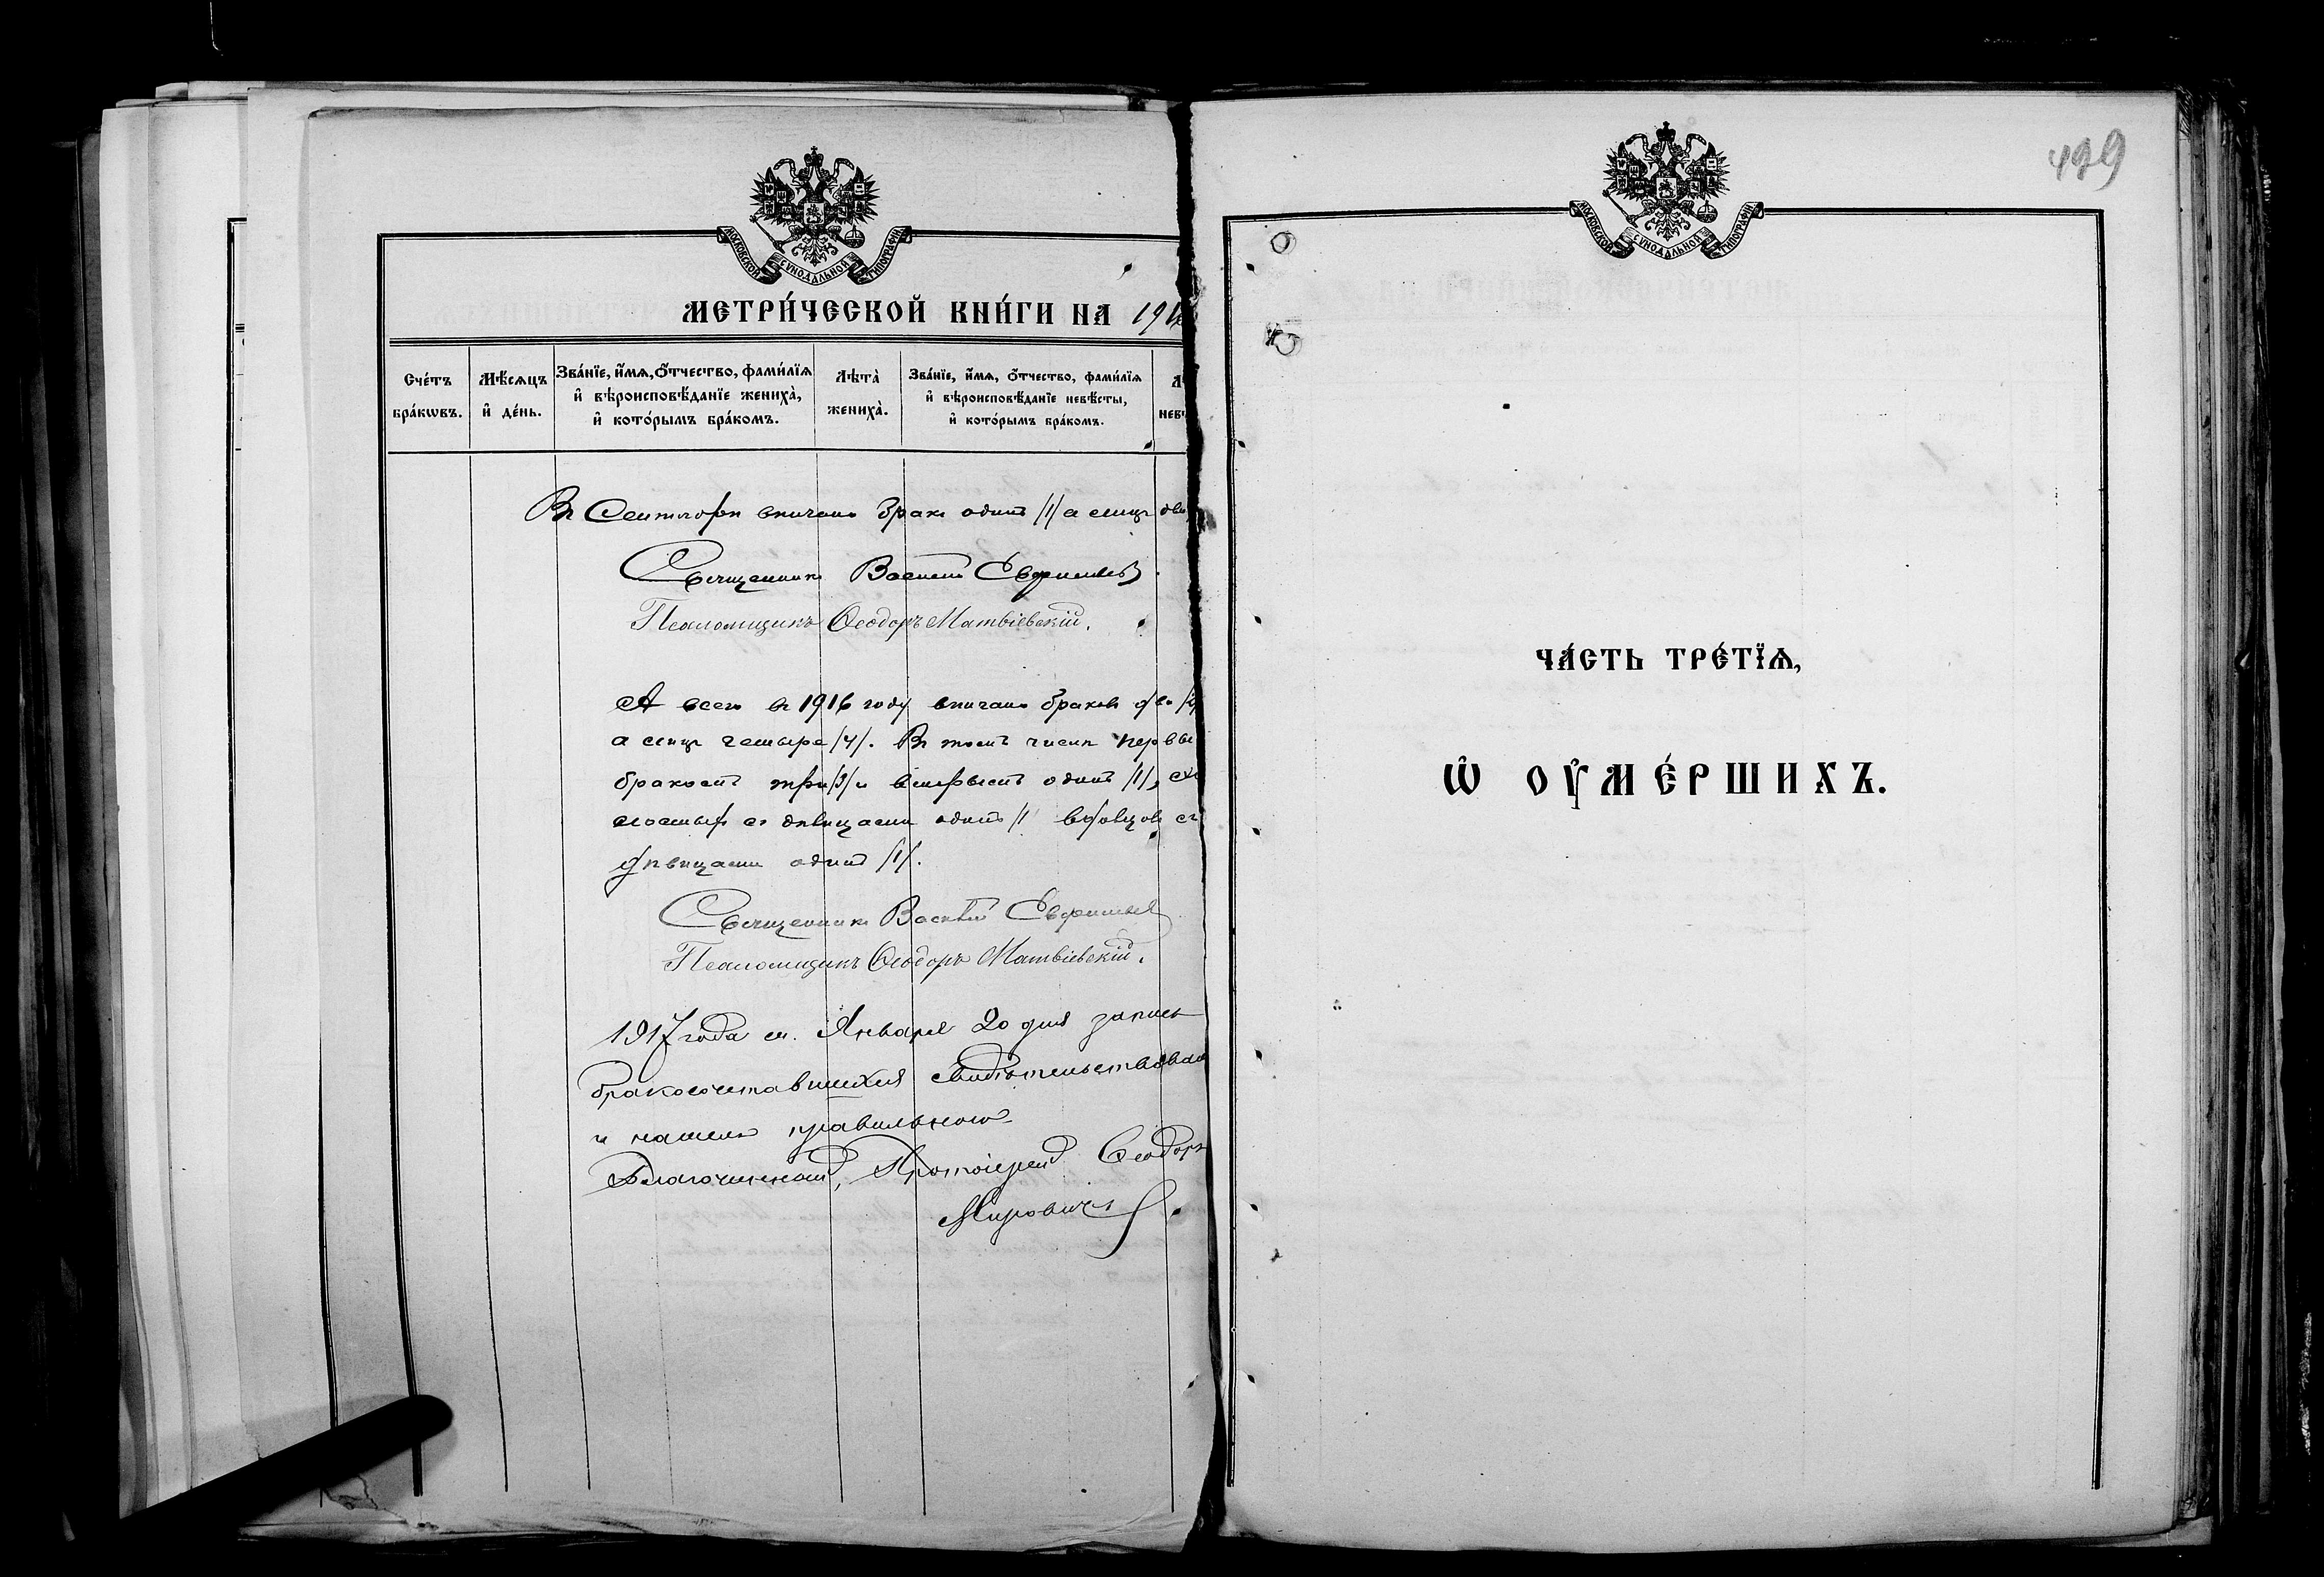 МОСКОВСКОЙ СѴНОДАЛЬНОЙ ТИПОГРАФІИ
МЕТРИ́ЧЕСКОЙ КНИ́ГИ НА 191
Сче́тъ бра́кѡвъ.
Мѣ́сѧцъ и҆ де́нь.
Зва́нїе, и҆́мѧ, ѻ҆́тчество, фами́лїѧ и҆ вѣроисповѣ́данїе жениха̀, и҆ кото́рымъ бра́комъ.
Лѣта̀ жениха̀.
Зва́нїе, и҆́мѧ, ѻ҆́тчество, фами́лїѧ и҆ вѣроисповѣ́данїе невѣ́сты, и҆ кото́рымъ бра́комъ.
Въ Сентябрѣ вѣнчано бракъ одинъ /1/ а лицъ два
Священникъ Василій Евфимьев
Псаломщикъ Ѳеодоръ Матвіевскій.
А всего въ 1916 году вѣнчано браковъ два /2/
а лицъ четыре /4/. Въ томъ числѣ первы
бракомъ три /3/ и вторымъ одинъ /1/, Хо
лостыхъ съ дѣвицами одинъ /1/ вдовцовъ съ
дѣвицами одинъ /1/.
Священникъ Василій Евфимьев
Псаломщикъ Ѳеодоръ Матвіевскій.
1917 года м. Января 20 дня запись
бракосочетавшихся свидѣтельствовал
и нашелъ правильною
Благочинный, Протоіерей Ѳеодоръ
Мировичъ
499
МОСКОВСКОЙ СѴНОДАЛЬНОЙ ТИПОГРАФІИ
ЧА́СТЬ ТРЕ́ТЇѦ,
Ѡ҆ ОУ҆МЕ́РШИХЪ.